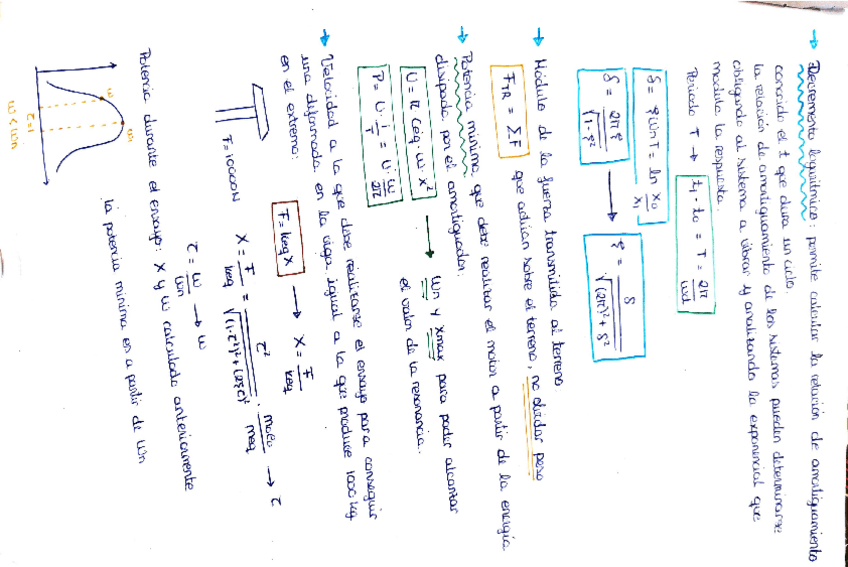 → Decremento logarítmico: permite calcular la relación de amortiguamiento
conocido el t que dura un ciclo.
la relación de amortiguamiento de los sistemas pueden determinarse
obligando al sistema a vibrar y analizando la exponencial que
modula la respuesta.
Periodo T → t₁ - t₀ = T = 2π/ωd
δ = ζ ωn T = ln x₀/x₁
δ = 2πζ/√(1-ζ²) → ζ = δ/√((2π)² + δ²)
→ Módulo de la fuerza transmitida al terreno
F_TR = ΣF que actúan sobre el terreno, no olvidar peso
→ Potencia mínima que debe realizar el motor a partir de la energía
disipada por el amortiguador:
U = π Ceq · ω · x² → ωn y xmax para poder alcanzar
el valor de la resonancia.
P = U · 1/T = U · ω/2π
→ Velocidad a la que debe realizarse el ensayo para conseguir
una deformada en la viga igual a la que produce 1000 kg
en el extremo:
F = keq x → x = F/keq
F = 10000N x = F/keq = τ²/√((1-τ²)²+(2ζτ)²) · moeo/meq → τ
τ = ω/ωn → ω
Potencia durante el ensayo: x y ω calculado anteriormente
la potencia mínima es a partir de ωn
ω ωn
τ=1
ω < ωn